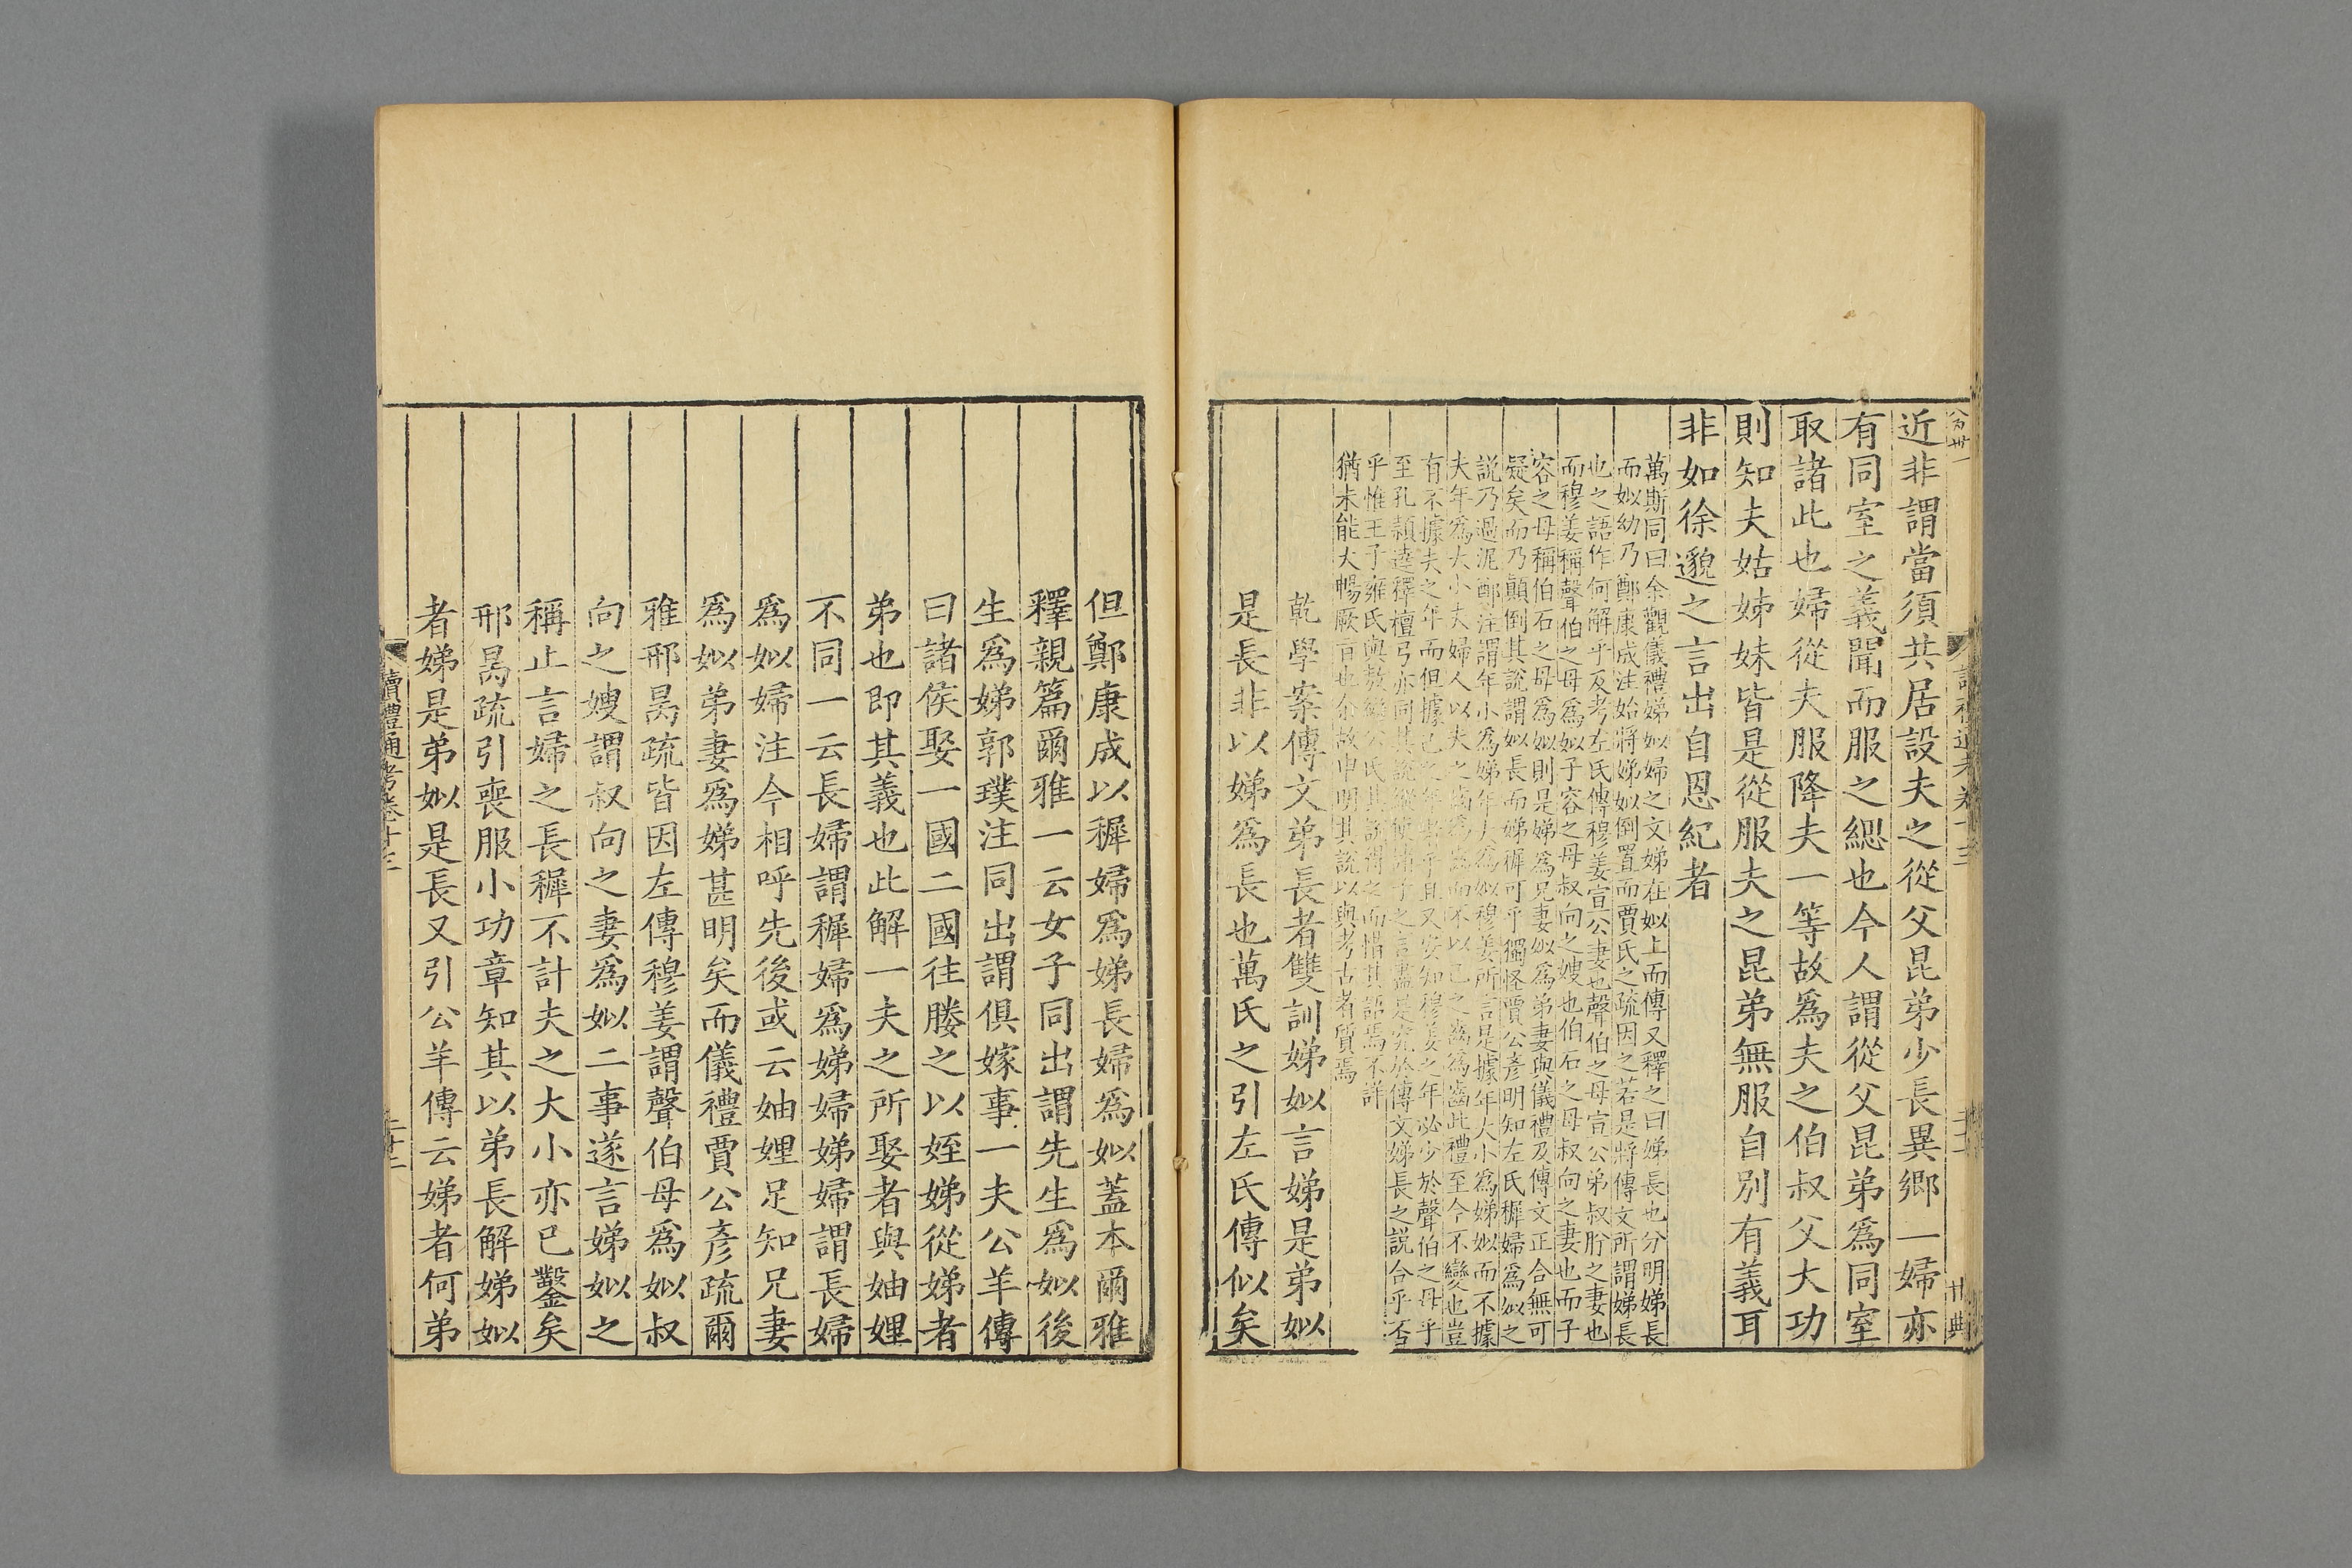 近非謂當須共居設夫之從父昆弟少長異鄉一婦亦
有同室之義聞而服之緦也今人謂從父昆弟爲同室
取諸此也婦從夫服降夫一等故爲夫之伯叔父大功
則知夫姑姊妹皆是從服夫之昆弟無服自別有義耳
非如徐邈之言出自恩紀者
萬斯同曰余觀儀禮娣姒婦之文娣在姒上而傳又釋之曰娣長也分明娣長
而姒幼乃鄭康成注始將娣姒倒置而賈氏之疏因之若是將傳文所謂娣長
也之語作何解乎及考左氏傳穆姜宣公妻也聲伯之母宣公弟叔肸之妻也
而穆姜稱聲伯之母爲姒子容之母叔向之嫂也伯石之母叔向之妻也而子
容之母稱伯石之母爲姒則是娣爲兄妻姒爲弟妻與儀禮及傳文正合無可
疑矣而乃顛倒其說謂姒長而娣穉可乎獨怪賈公彥明知左氏穉婦爲姒之
說乃過泥鄭注謂年小爲娣年大爲姒穆姜所言是據年大小爲娣姒而不據
夫年爲大小夫婦人以夫之齒爲齒而不以己之齒爲齒此禮至今不變也豈
有不據夫之年而但據己之年者乎且又安知穆姜之年必少於聲伯之母乎
至孔穎達釋檀弓亦同其說從之言盡是究於傳文娣長之說合乎否
乎惟王子雍氏與敖繼公氏其說得之而惜其語焉不詳
猶未能大暢厥旨也余故申明其說以與考古者質焉
乾學案傳文弟長者雙訓娣姒言娣是弟姒
是長非以娣爲長也萬氏之引左氏傳似矣
但鄭康成以穉婦爲娣長婦爲姒蓋本爾雅
釋親篇爾雅一云女子同出謂先生爲姒後
生爲娣郭璞注同出謂俱嫁事一夫公羊傳
曰諸侯娶一國二國往媵之以姪娣從娣者
弟也即其義也此解一夫之所娶者與妯娌
不同一云長婦謂穉婦爲娣婦娣婦謂長婦
爲姒婦注今相呼先後或云妯娌足知兄妻
爲姒弟妻爲娣甚明矣而儀禮賈公彥疏爾
雅邢昺疏皆因左傳穆姜謂聲伯母爲姒叔
向之嫂謂叔向之妻爲姒二事遂言娣姒之
稱止言婦之長穉不計夫之大小亦已鑿矣
邢昺疏引喪服小功章知其以弟長解娣姒
者娣是弟姒是長又引公羊傳云娣者何弟
讀禮通考卷十三
二十二